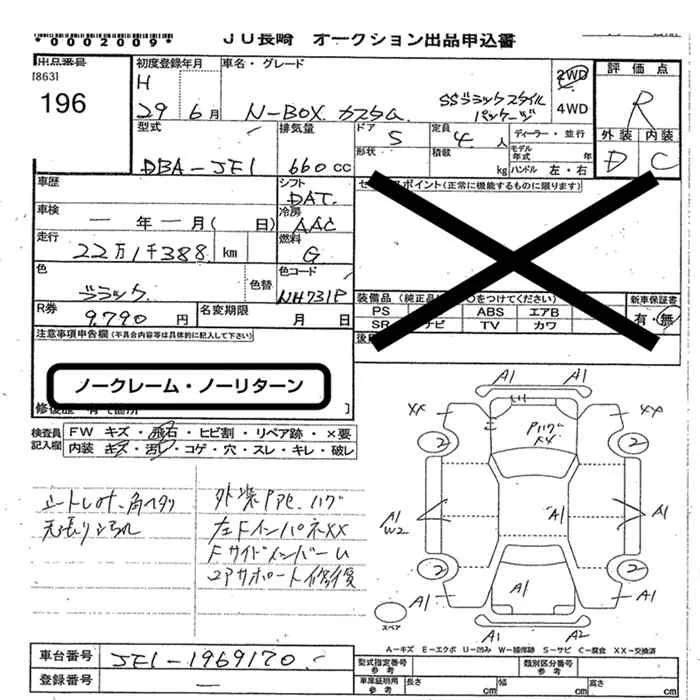 *0002009*
JU長崎 オークション出品申込書
出品番号
[863]
196
初度登録年月
H
29年 6月
車名・グレード
N-BOX カスタム
SSブラックスタイル
パッケージ
2WD
4WD
評価点
R
外装 内装
D C
型式
DBA-JF1
排気量
660cc
ドア
5
定員
4人
ディーラー・並行
形状
積載
kg
モデル
年式
年
ハンドル 左・右
車歴
シフト
DAT
車検
一年一月( 日)
冷房
AAC
走行
22万1千388 km
燃料
G
色
ブラック
色替
色コード
NH731P
R券
9,790円
名変期限
月 日
ポイント(正常に機能するものに限ります)
装備品
つけてください)
新車保証書
有・無
PS
ABS
エアB
SR
ナビ
TV
カワ
注意事項申告欄(不具合内容等は具体的に記入して下さい)
ノークレーム・ノーリターン
検査員
記入欄
FW キズ・飛石・ヒビ割・リペア跡・×要
内装 キズ・汚レ・コゲ・穴・スレ・キレ・破レ
外装
左FインパネXX
Fサイドインバーレ
コアサポート修復
A1 A1
XX XX
2 2
A1
W2
A1
A1
2 2
A1 A1 A1
A1 A2
スペア
A-キズ E-エクボ U-凹み W-補修跡 S-サビ C-腐食 XX-交換済
車台番号
JF1-1969170
登録番号
一
型式指定番号
参考
類別区分番号
参考
車庫証明用
参考
長さ
cm
幅
cm
高さ
cm